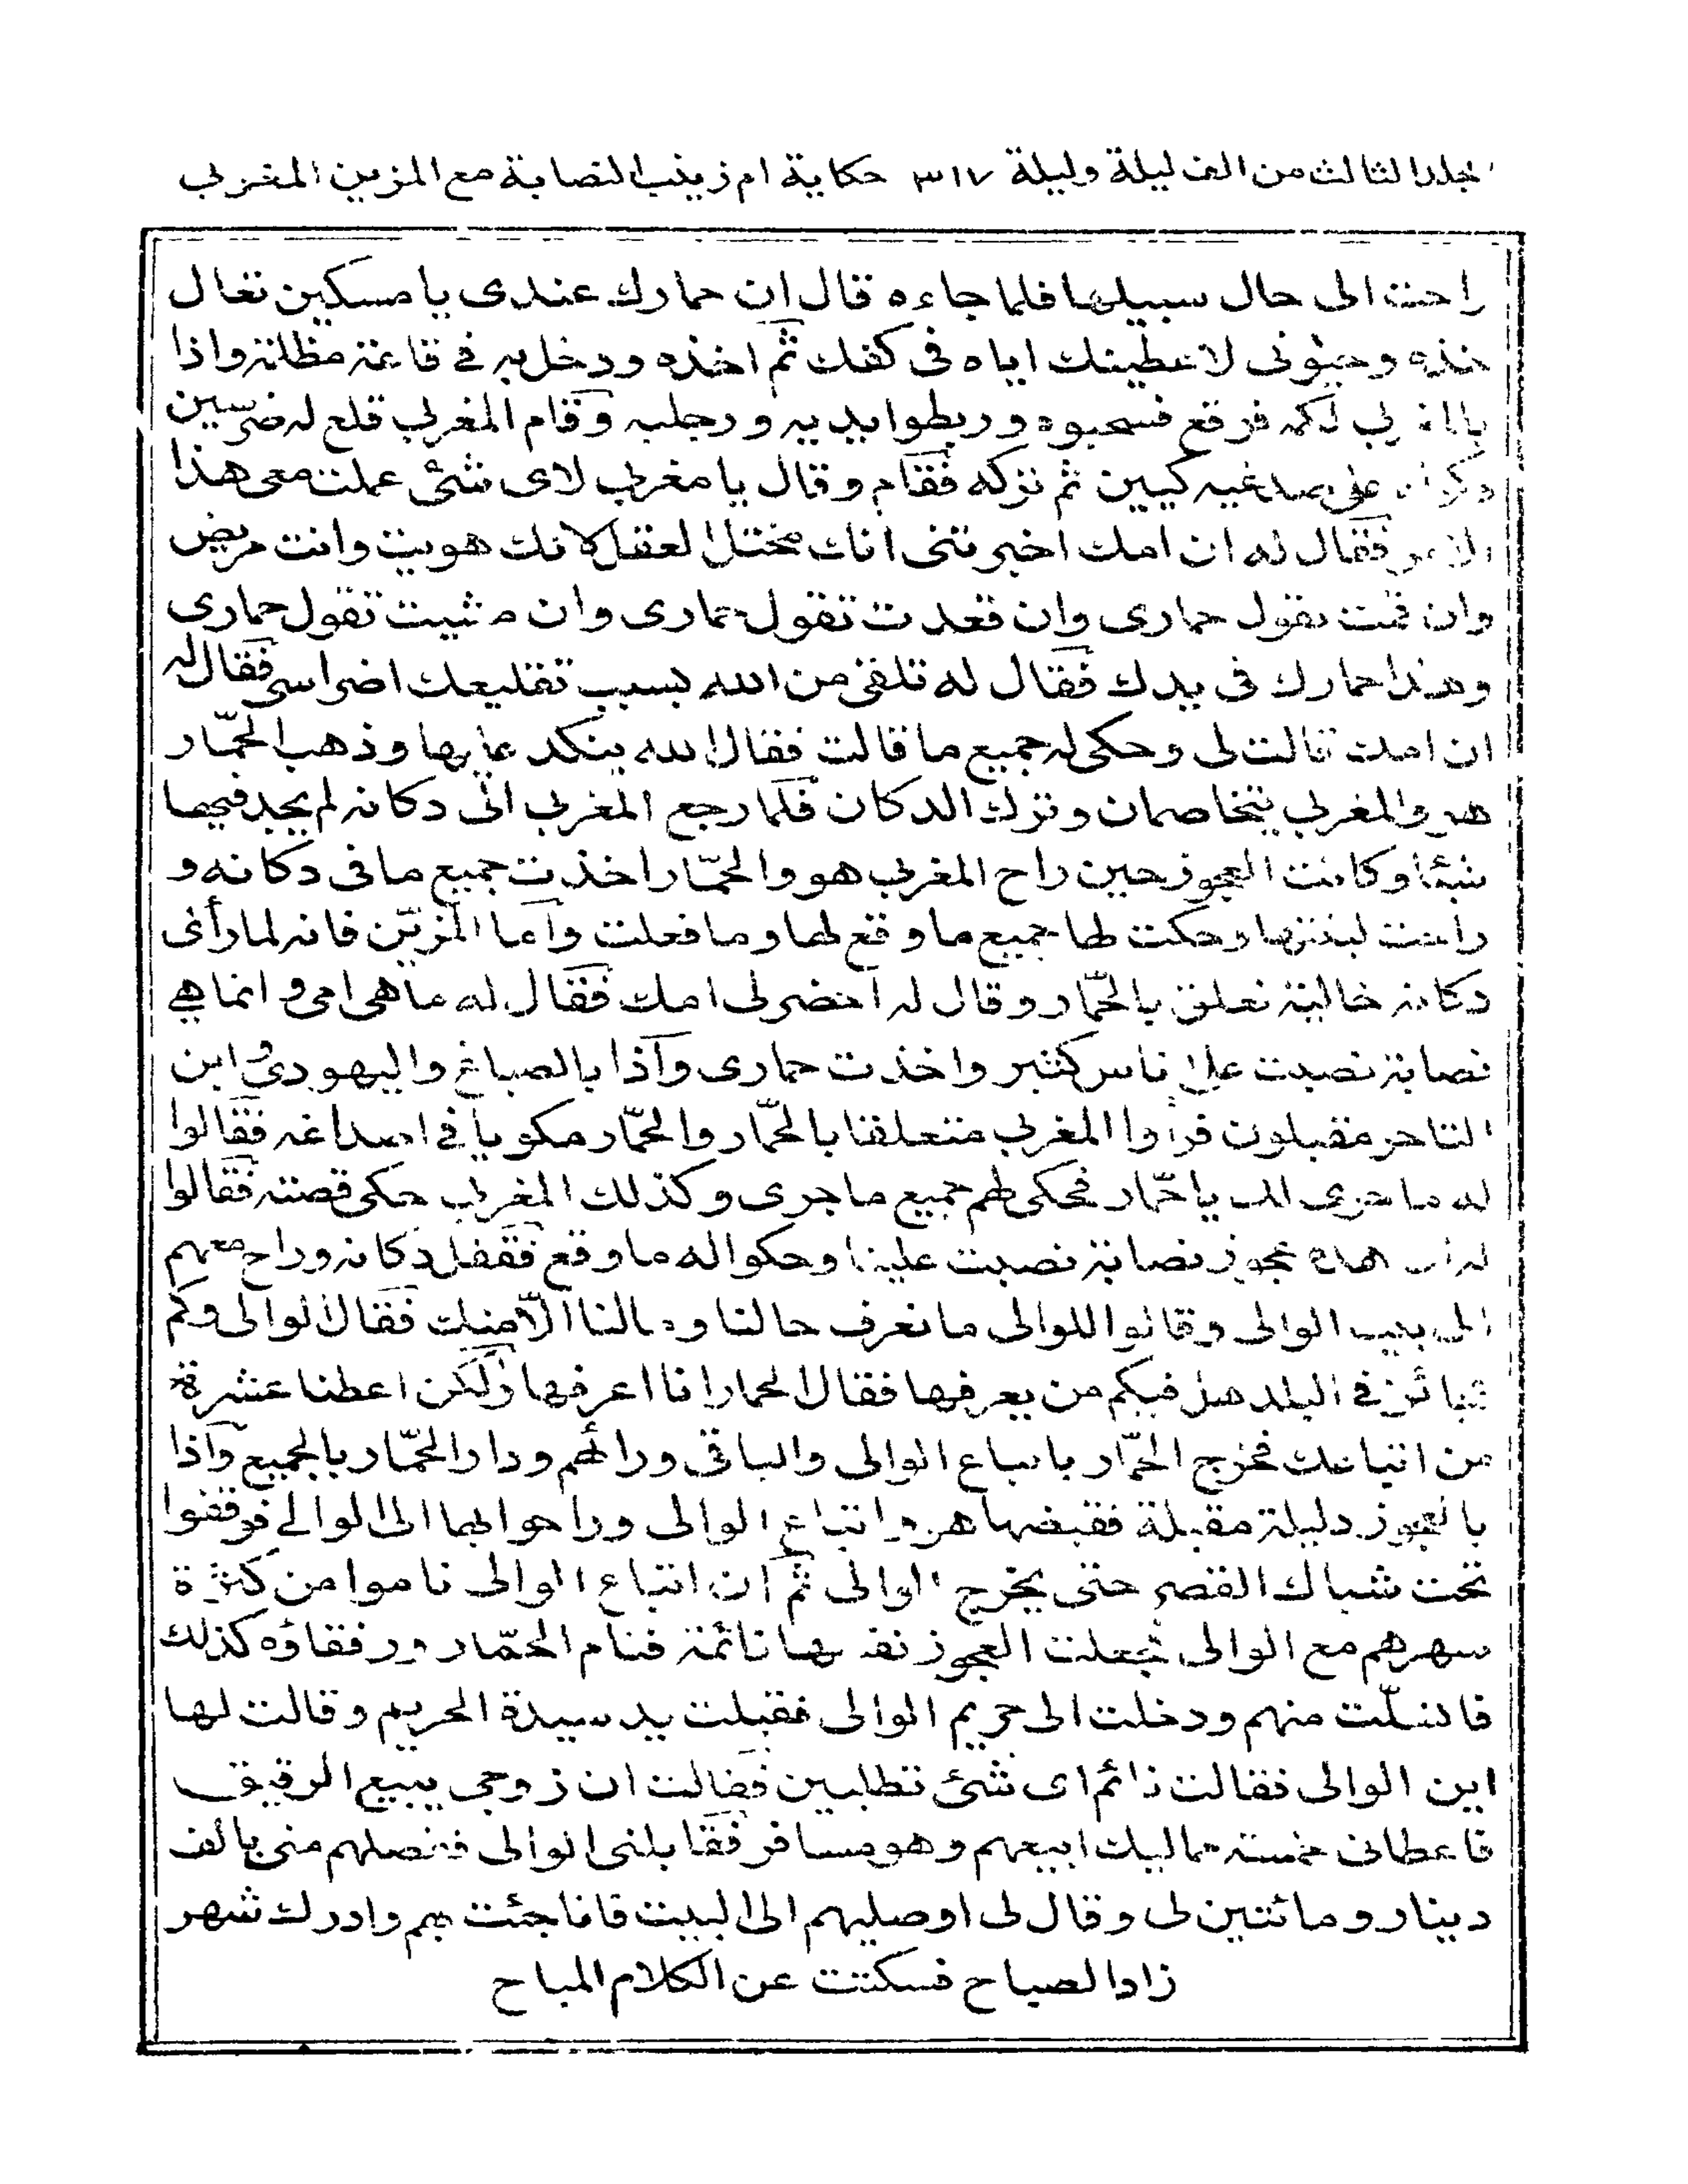 المجلد الثالث من الف ليلة وليلة ٣١٧ حكاية ام زينب النصابة مع المزين المغربي
راحت الى حال سبيلها فلما جاءه قال ان حمارك عندى يا مسكين تعال
خذه وحيوتى لاعطينك اياه فى كفك ثم اخذه ودخل به فى قاعة مظلمة واذا
بالمغربي لكمه فوقع فسحبوه وربطوا يديه ورجليه وقام المغربي قلع له ضرسين
وكواه على صدغيه كيين ثم تركه فقام وقال يا مغربي لاى شئ عملت معى هذا
الامر فقال له ان امك اخبرتنى انك مختل العقل لانك هويت وانت مريض
وان قمت تقول حمارى وان قعدت تقول حمارى وان مشيت تقول حمارى
وهذا حمارك فى يدك فقال له تلقى من الله بسبب تقليعك اضراسى فقال له
ان امك قالت لى وحكى له جميع ما قالت فقال الله ينكد عليها وذهب الحمّار
هو والمغربي يتخاصمان وترك الدكان فلما رجع المغربي الى دكانه لم يجد فيها
شيئا وكانت العجوز حين راح المغربي هو والحمّار اخذت جميع ما فى دكانه و
راحت لبنتها وحكت لها جميع ما وقع لها وما فعلت واما المزيّن فانه لما رأى
دكانه خالية تعلق بالحمّار وقال له احضر لى امك فقال له ما هى امى وانما هي
نصابة نصبت على ناس كثير واخذت حمارى واذا بالصباغ واليهودى وابن
التاجر مقبلون فرأوا المغربي متعلقا بالحمّار والحمّار مكويا فى اصداغه فقالوا
له ما جرى لك يا حمّار فحكى لهم جميع ما جرى وكذلك المغربي حكى قصته فقالوا
له ان هذه عجوز نصابة نصبت علينا وحكوا له ما وقع فقفل دكانه وراح معهم
الى بيت الوالى وقالوا للوالى ما نعرف حالنا ومالنا الّا منك فقال الوالى وكم
عجائز فى البلد هل فيكم من يعرفها فقال الحمار انا اعرفها ولكن اعطنا عشرة
من اتباعك فخرج الحمّار باتباع الوالى والباقى ورائهم ودار الحمّار بالجميع واذا
بالعجوز دليلة مقبلة فقبضها هو واتباع الوالى وراحوا بها الى الوالي فوقفوا
تحت شباك القصر حتى يخرج الوالى ثم ان اتباع الوالى ناموا من كثرة
سهرهم مع الوالى فجعلت العجوز نفسها نائمة فنام الحمّار ورفقاؤه كذلك
فانسلّت منهم ودخلت الى حريم الوالى فقبلت يد سيدة الحريم وقالت لها
اين الوالى فقالت نائم اى شئ تطلبين فقالت ان زوجى يبيع الرقيق
فاعطانى خمسة مماليك ابيعهم وهو مسافر فقابلنى الوالى ففصلهم منى بالف
دينار ومائتين لى وقال لى اوصليهم الى البيت فانا جئت بهم وادرك شهر
زاد الصباح فسكتت عن الكلام المباح